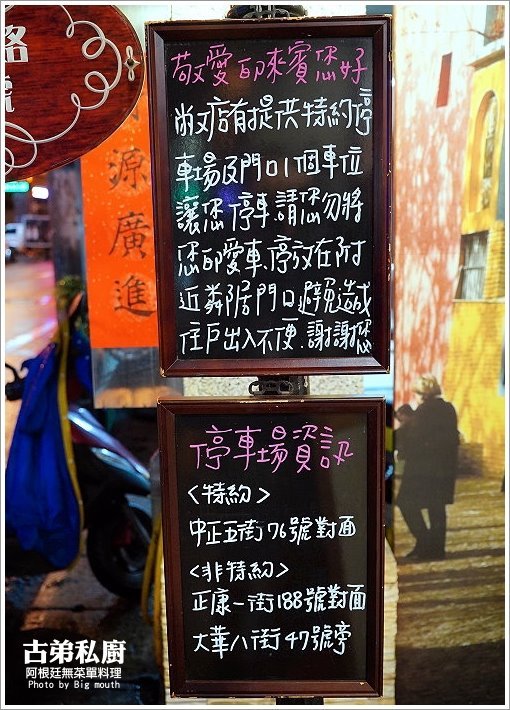 路
號
源廣進
敬愛的來賓您好
尚好店有提供特約停
車場及門口1個車位
讓您停車.請您勿將
您的愛車.停放在附
近鄰居門口.避免造成
住戶出入不便.謝謝您
停車場資訊
<特約>
中正五街76號對面
<非特約>
正康一街188號對面
大華八街47號旁
古弟私廚
阿根廷無菜單料理
Photo by Big mouth